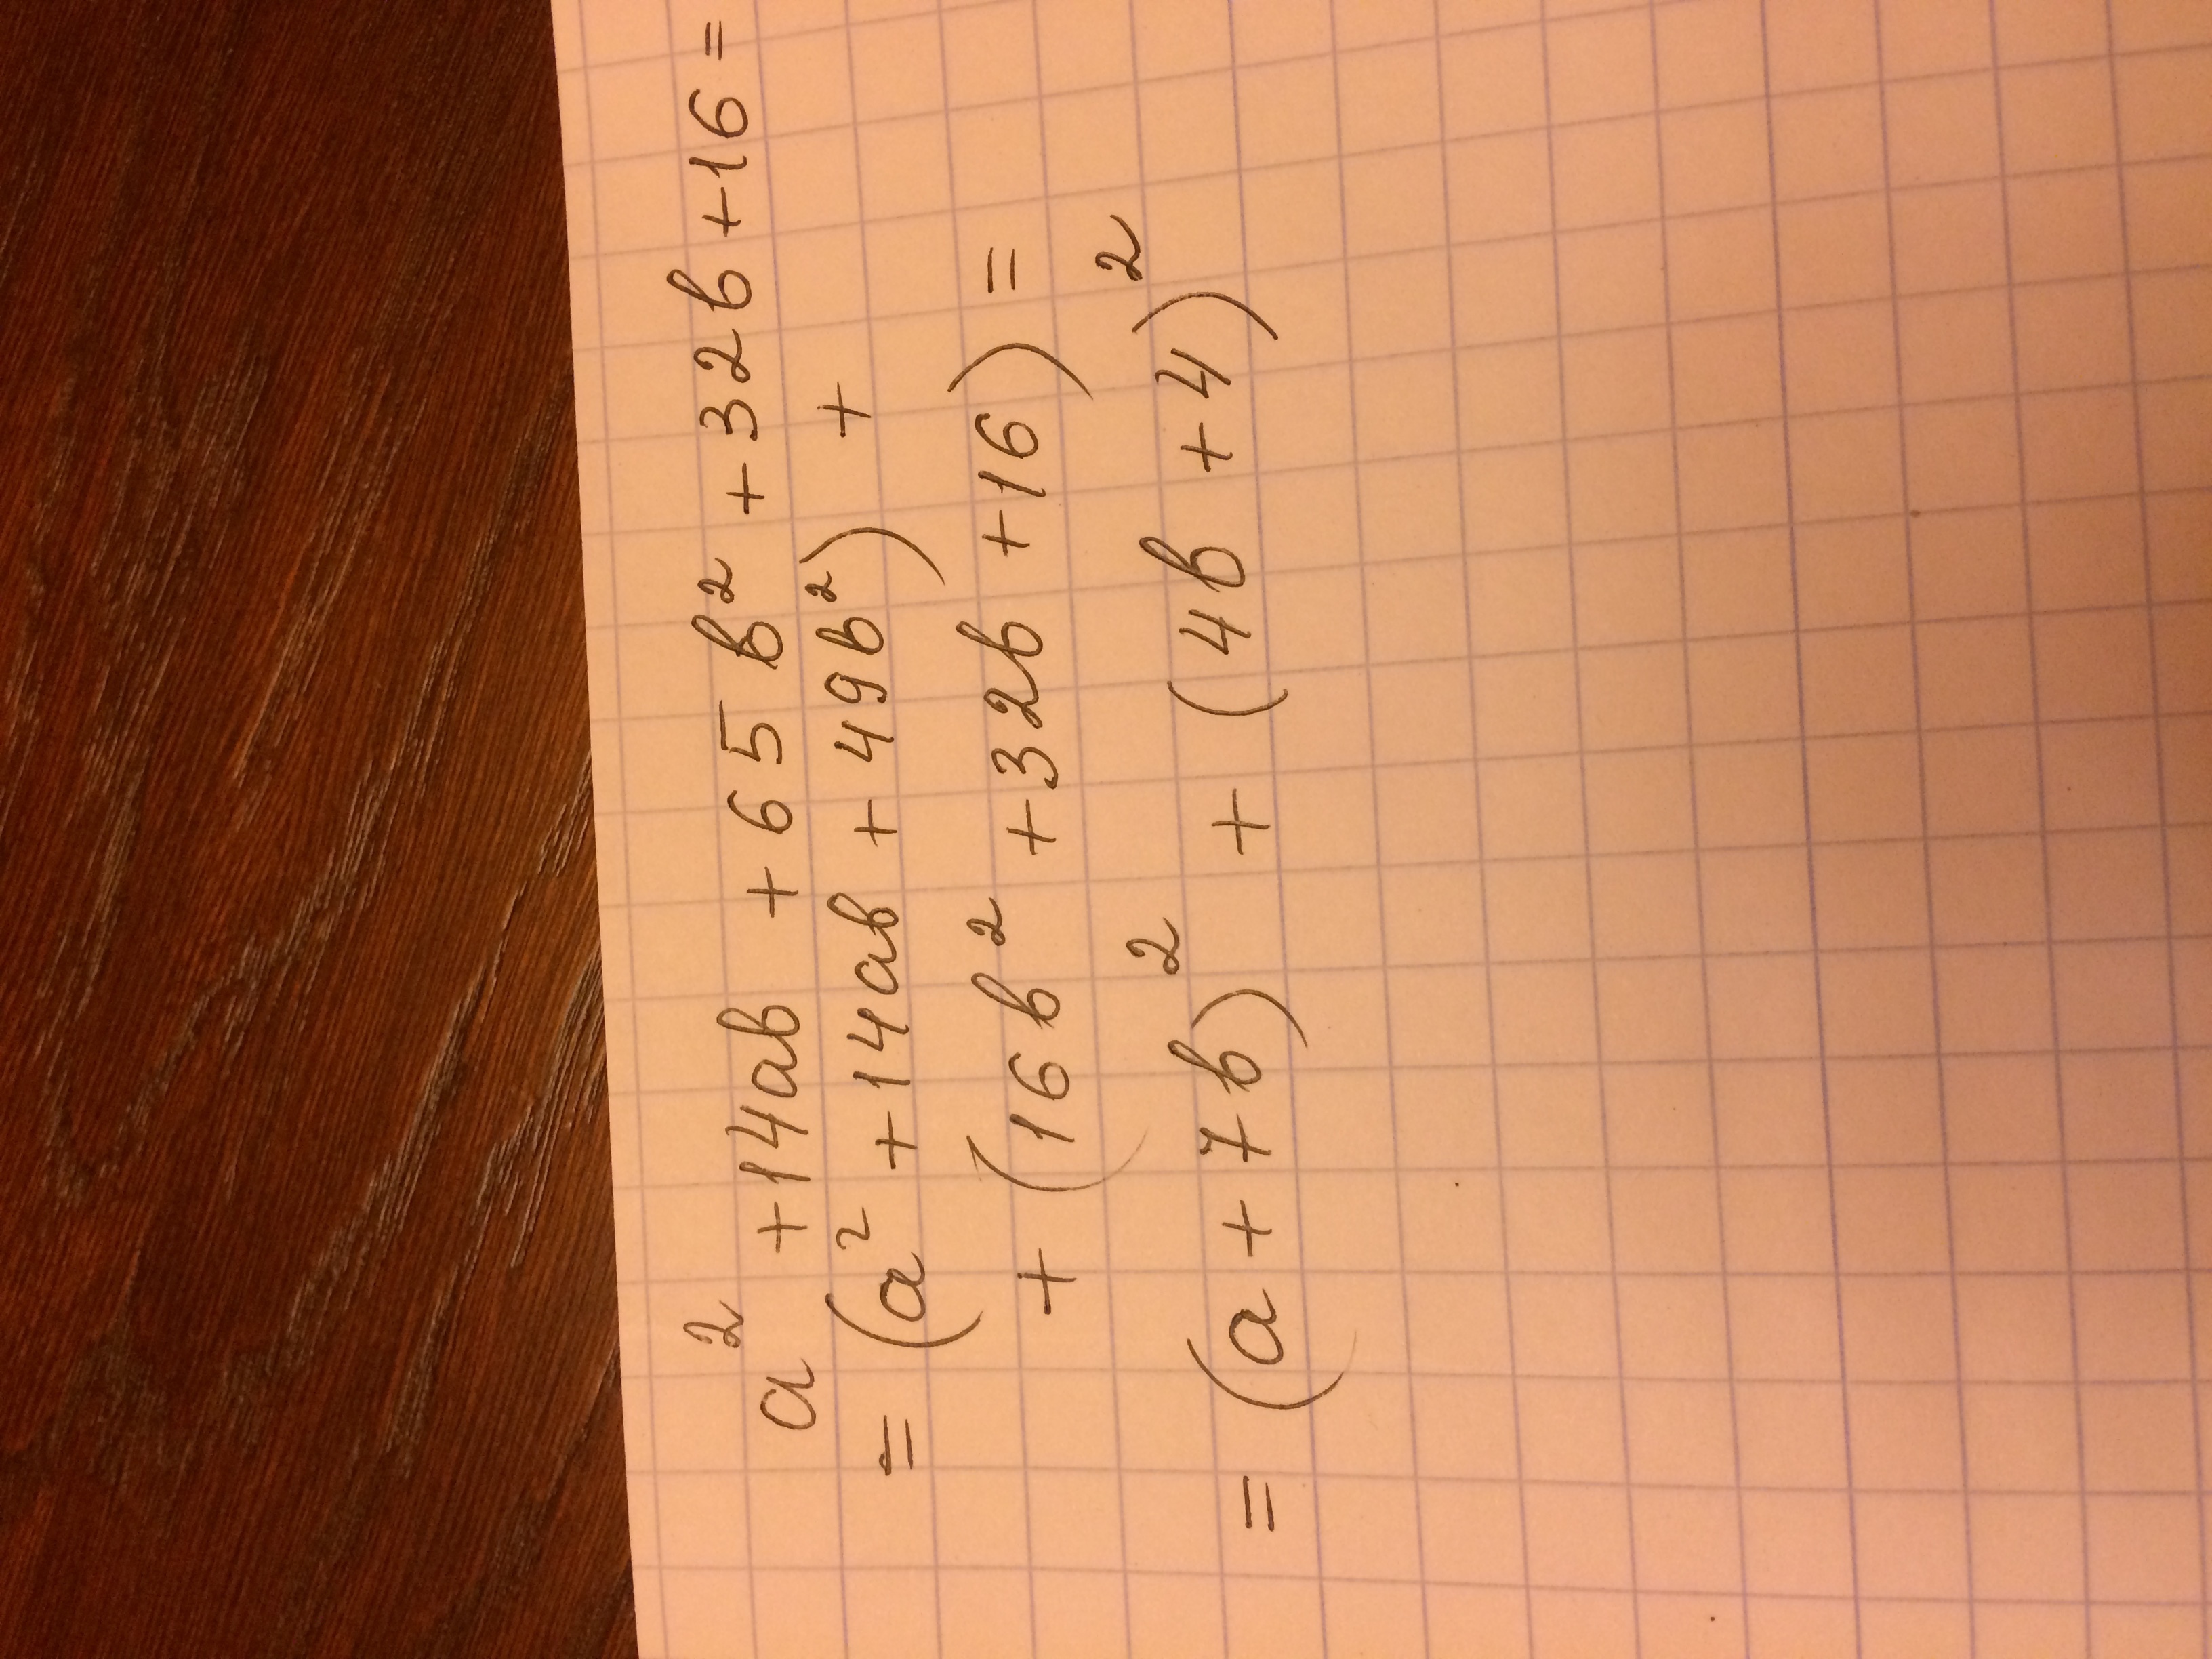 a² + 14ab + 65b² + 32b + 16 =
= (a² + 14ab + 49b²) +
+ (16b² + 32b + 16) =
= (a + 7b)² + (4b + 4)²